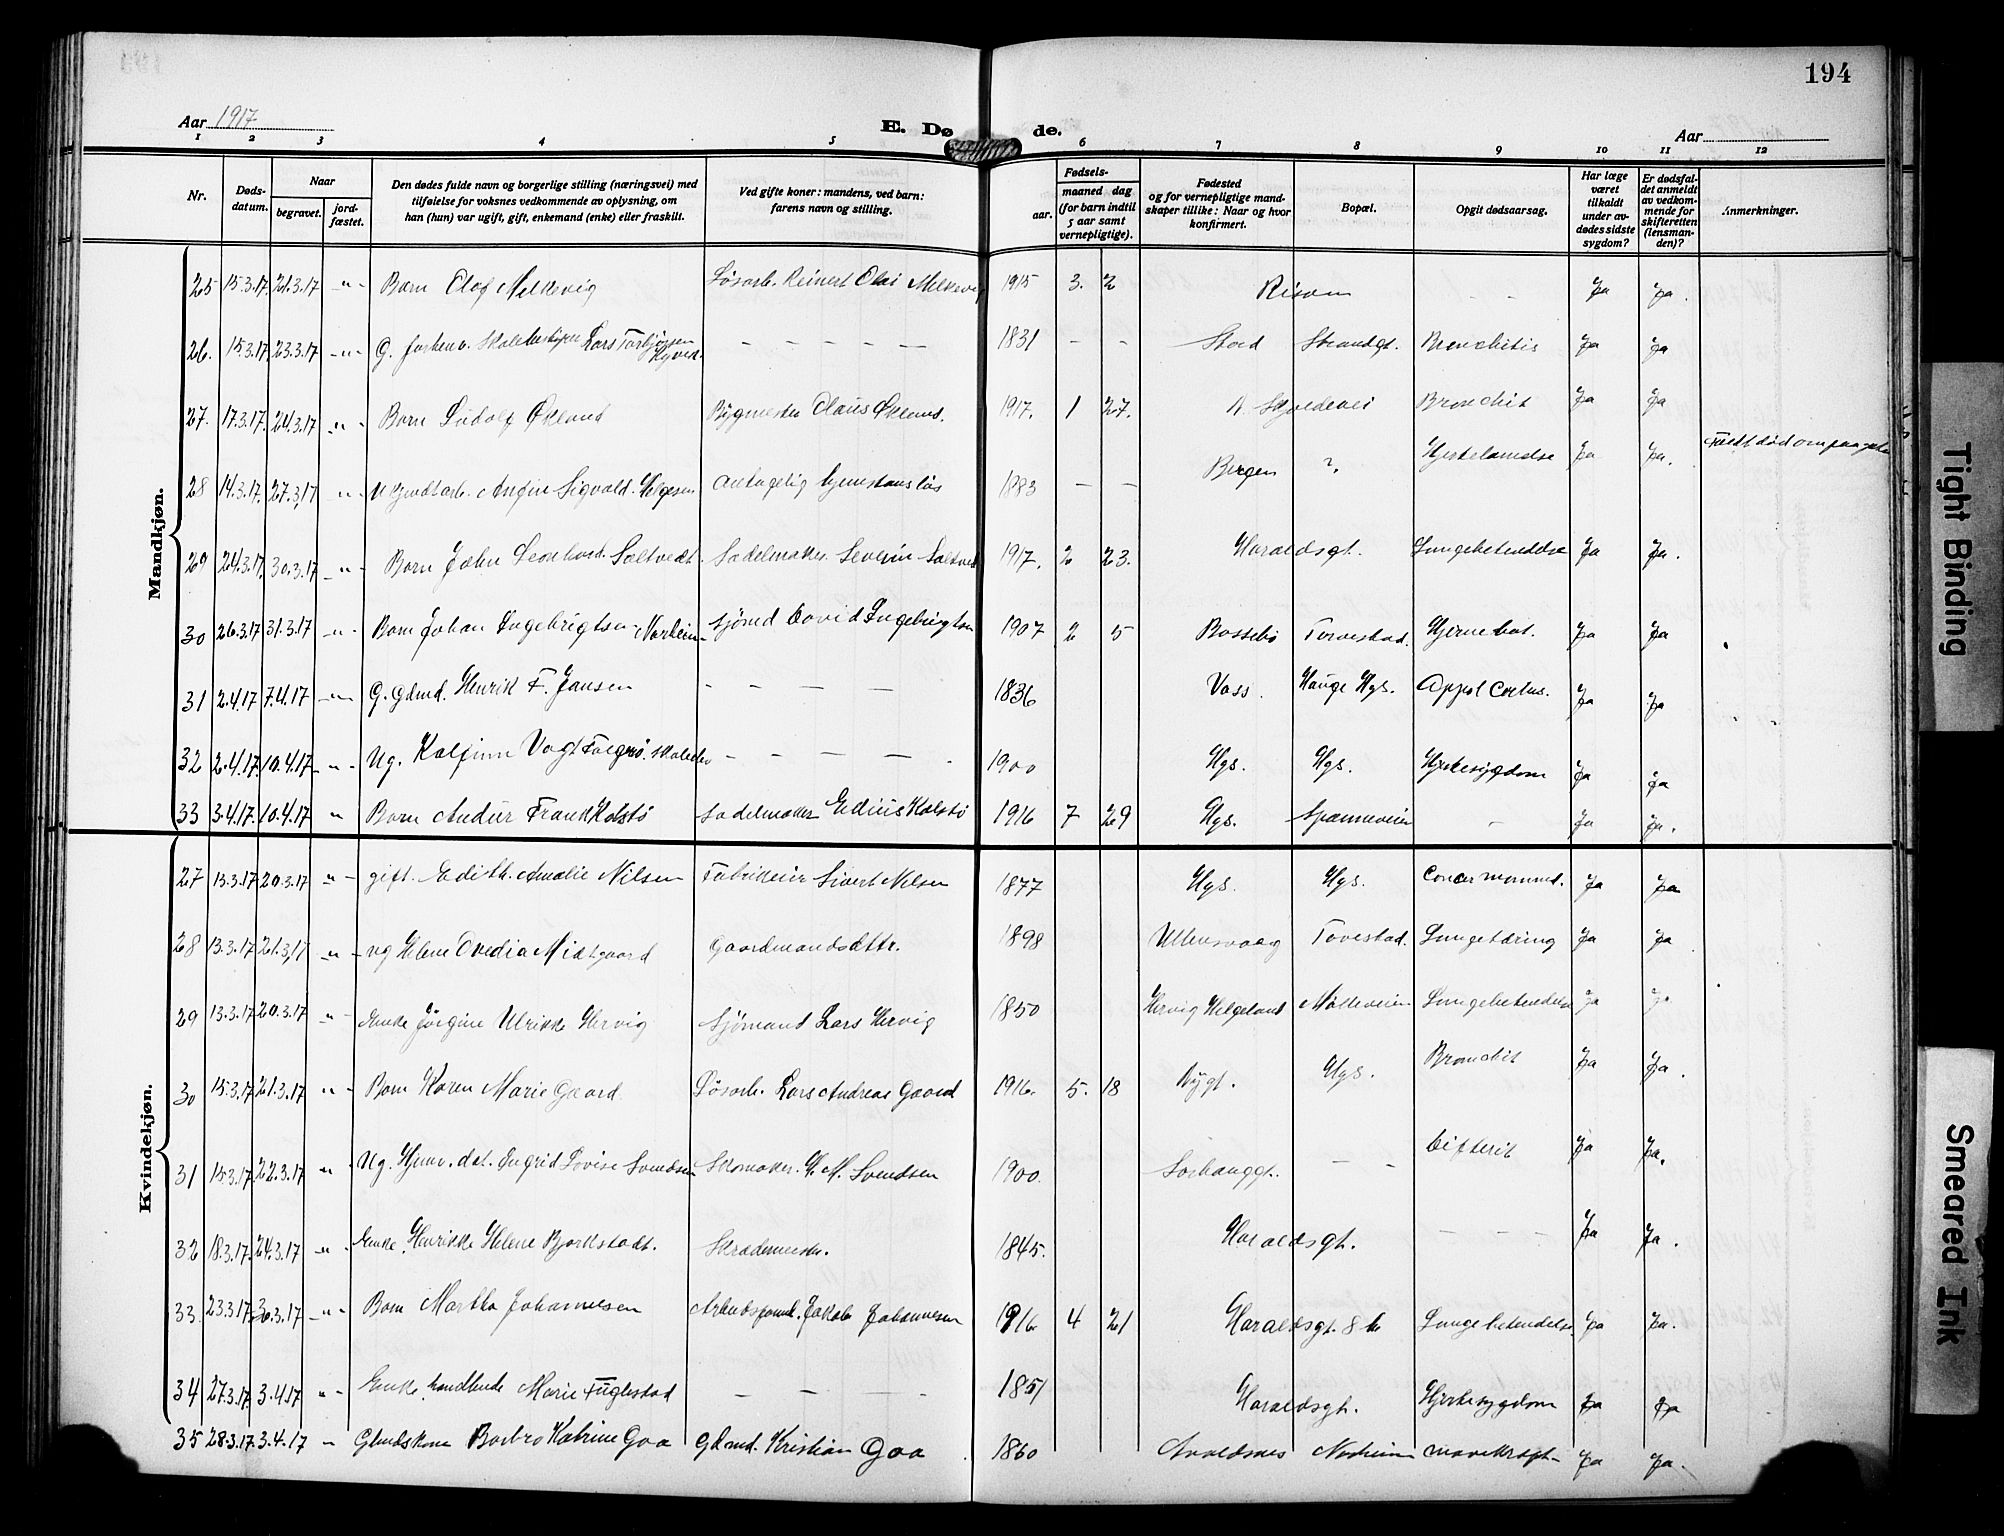 194
Aar 1917
E. Dø de.
Aar
1 2 3 4 5 6 7 8 9 10 11 12
Nr.
Døds-datum.
Naar
begravet.
jord-fæstet.
Den dødes fulde navn og borgerlige stilling (næringsvei) med tilføielse for voksnes vedkommende av oplysning, om han (hun) var ugift, gift, enkemand (enke) eller fraskilt.
Ved gifte koner: mandens, ved barn: farens navn og stilling.
Fødsels-
aar.
maaned dag
(for barn indtil 5 aar samt vernepligtige).
Fødested og for vernepligtige mandskaper tillike: Naar og hvor konfirmert.
Bopæl.
Opgit dødsaarsag.
Har læge været tilkaldt under avdødes sidste sygdom?
Er dødsfaldet anmeldt av vedkommende for skifteretten (lensmanden)?
Anmerkninger.
Mandkjøn.
25 15.3.17. 21.3.17 -"- Barn Olaf Melkevig Løsarb. Reinert Olai Melkevig 1915 3. 2 Risøen - - Ja Ja.
26. 15.3.17. 23.3.17 -"- G. forhenv. Skolebestyrer Lars Torbjørnsen - - - - - 1831 - - Stord Strandgt. Bronchitis Ja Ja
27. 17.3.17. 24.3.17 -"- Barn Ludolf Økland Bygmester Claus Økland. 1917. 1 27. Skjoldevei Bronchit Ja Ja
28 14.3.17. 27.3.17 -"- Sigvald Helgesen Antagelig hjemstansløs 1883 - - Bergen ? Ja Ja. Fundt død
29 24.3.17. 30.3.17 -"- Barn John Leonhard Saltvedt. Sadelmaker Severin Saltvedt 1917. 2 23. Haraldsgt. Lungebetendelse Ja Ja.
30 26.3.17 31.3.17 -"- Barn Johan Ingebrigtsen Norheim Sjømd David Ingebrigtsen 1907 2 5 Bossebø Torvestad. Hjernebet. Ja Ja
31 2.4.17 7.4.17 -"- G. Gdmd. Henrik F. Jansen - - - - 1836 Voss. Hauge Hgs. Ja Ja
32 2.4.17 10.4.17 -"- Ug. Kolfinn Vagt skoleelev - - - - 1900 Hgs. Hgs. Hjertesygdom Ja Ja
33 3.4.17. 10.4.17 " Barn Andur Frank Kolstø Sadelmaker Edius Kolstø 1916 7 29 Hgs. Spanneveien - Ja Ja.
Kvindekjøn.
27 13.3.17 20.3.17 " - gift. Edith Amalie Nilsen Fabrikeier Sivert Nilsen 1877 Hgs. Hgs. Cancer mammæ. Ja Ja
28 13.3.17 21.3.17 -"- ug Helene Ovedia Midtgaard Gaardmandsdttr. 1898 Ullensvaag Torvestad. Lungetæring Ja Ja
29 13.3.17 20.3.17 -"- Enke Jørgine Ulrikke Hervig Sjømand Lars Hervig 1850 Hervig Helgeland Mølleveien Lungebetendelse Ja Ja
30 15.3.17 21.3.17 " - Barn Karen Marie Gaard. Løsarb. Lars Andreas Gaard 1916. 5. 18 Nygt. Hgs. Bronchit Ja Ja.
31 15.3.17 22.3.17 " - Ug. Ingrid Lovise Svendsen Skomaker H. M. Svendsen 1900. Sørhauggt. - - Difterit Ja Ja.
32 18.3.17 24.3.17 -"- Enke. Henrikke Helene Bjorkstadt. 1845. Haraldsgt. - - - Ja Ja.
33 23.3.17 30.3.17 -"- Barn Martha Johannesen Arbeidsformd. Jakob Johannesen 1916 4 21 Haraldsgt. 8 b Lungebetendelse. Ja Ja.
34 27.3.17. 3.4.17 "- Enke handlende Marie Fuglestad - - - - 1851 Haraldsgt. Hjertesygdom Ja Ja
35 28.3.17. 3.4.17 - Gbmdskone Barbro Katrine Goa Gdmd. Kristian Goa 1860 Avaldsnes Norheim mavekræft - Ja Ja.
Tight Binding
Smeared Ink